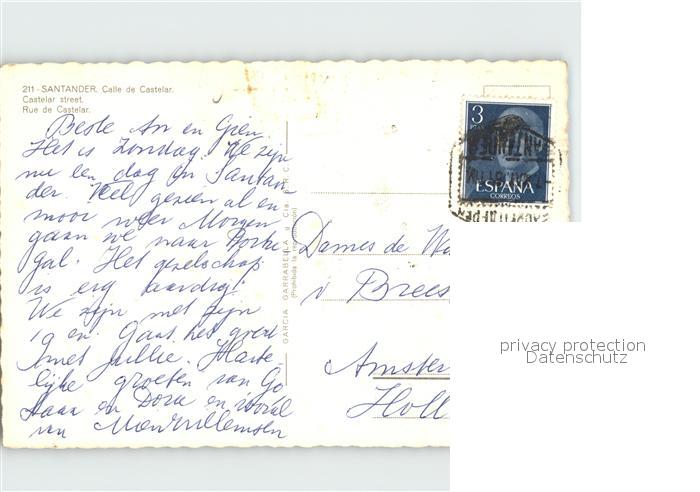 211 - SANTANDER. Calle de Castelar.
Castelar street.
Rue de Castelar.
Beste An en Gien
Het is Zondag. We zijn
nu een dag in Santan
der. Veel gezien al en
mooi weer Morgen
gaan we naar Portu
gal. Het gezelschap
is erg aardig!
We zijn met zijn
19 en. Gaat het goed
met jullie. Harte
lijke groeten van Go
Daan en Dora en vooral
van
GARCIA GARRABELLA y Cia.
(Prohibida la reproducción)
3
PTAS
ESPAÑA
CORREOS
SANTANDER
Dames de
Brees
Amster
Holl
privacy protection
Datenschutz